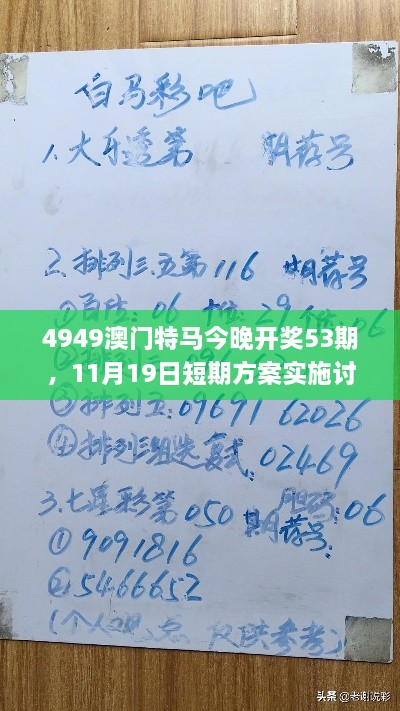 白马彩吧
1、大乐透第 期荐号
2、排列三.五第116期荐号
①百位: 06 十位: 29 个位: 06
4949澳门特马今晚开奖53期
，11月19日短期方案实施讨
③排列五: 09691 62026
④排列三组选复式: 02469
胆码: 06
3.七星彩第050期荐号:
①9091816
②5466652
(个人观点 仅供参考)
头条 @老谢说彩